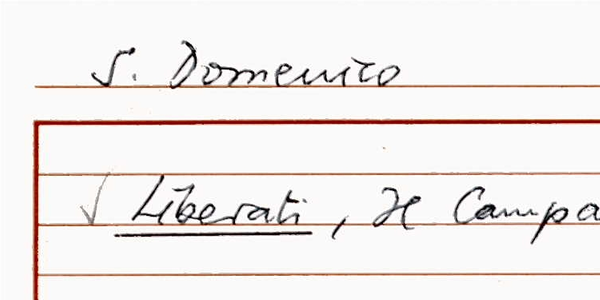 S. Domenico
√ Liberati, Il Campa